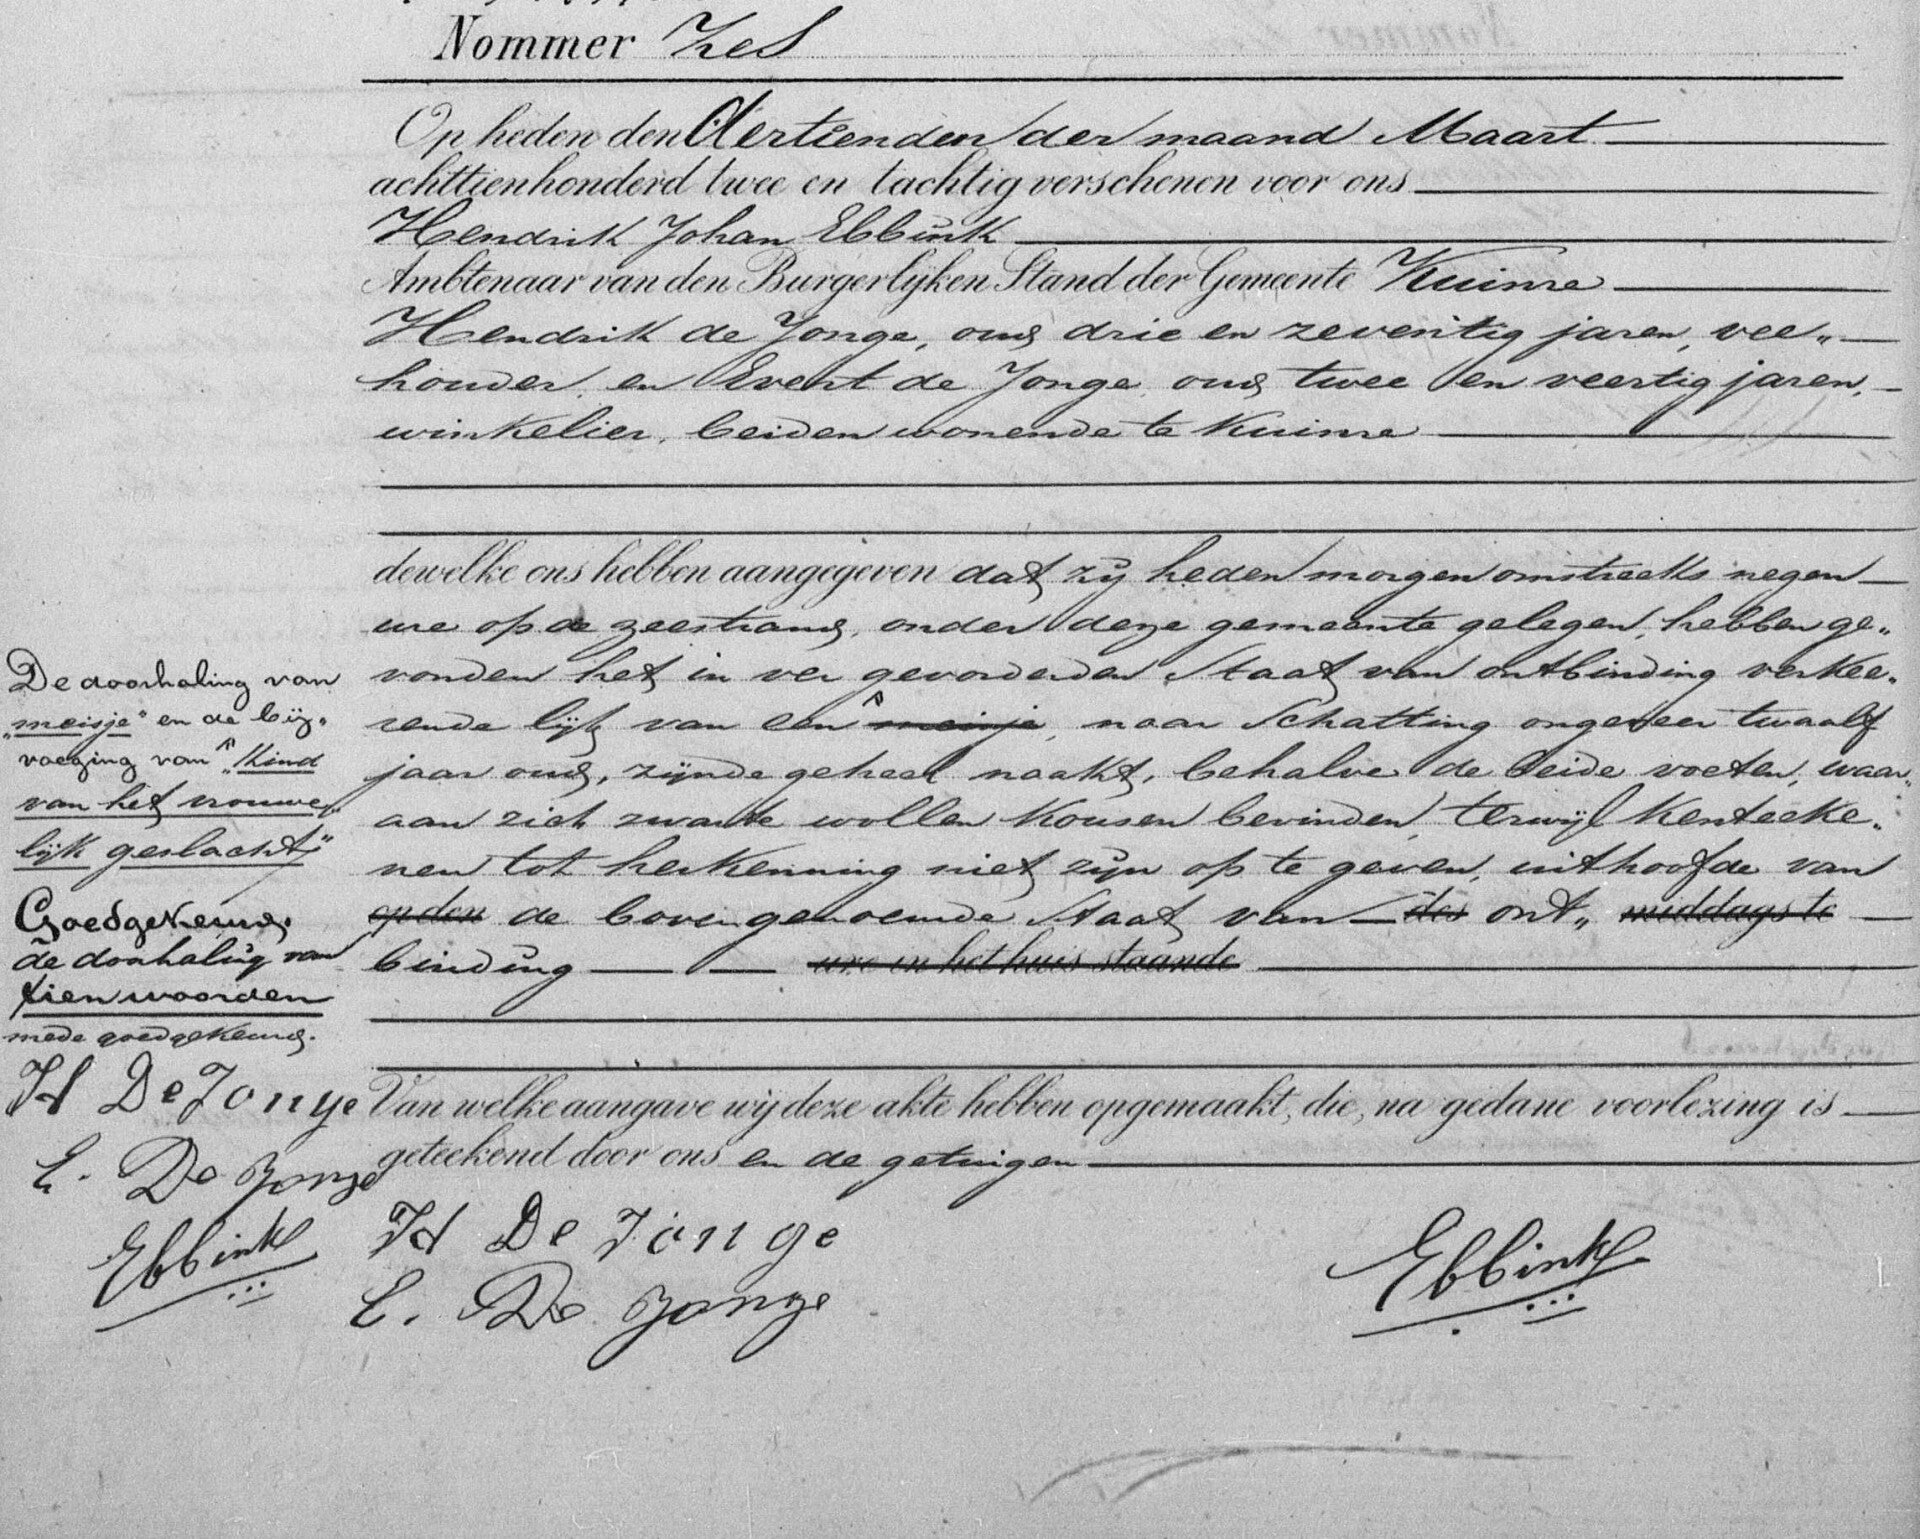 Nommer Zes
Op heden den dertienden der maand Maart
achttienhonderd twee en tachtig verschenen voor ons
Hendrik Johan Ebbink
Ambtenaar van den Burgerlijken Stand der Gemeente Kuinre
Hendrik de Jonge, oud drie en zeventig jaren, vee„
houder, en Evert de Jonge, oud twee en veertig jaren,
winkelier, beiden wonende te Kuinre
dewelke ons hebben aangegeven dat zij heden morgen omstreeks negen
ure op de zeestrand, onder deze gemeente gelegen, hebben ge„
vonden het in ver gevorderden Staat van ontbinding verkee„
rende lijk van een meisje, naar Schatting ongeveer twaalf
jaar oud, zijnde geheel naakt, behalve de beide voeten, waar„
aan zich zwarte wollen kousen bevinden, terwijl kenteeke„
nen tot herkenning niet zijn op te geven, uithoofde van
op den de bovengenoemde Staat van des ont„ middags te
binding ure in het huis staande
Van welke aangave wij deze akte hebben opgemaakt, die, na gedane voorlezing is
geteekend door ons en de getuigen
H De Jonge
E. De Jonge
Ebbink
De doorhaling van
„meisje" en de bij„
voeging van „Kind
van het vrouwe„
lijk geslacht"
Goedgekeurd.
de doorhaling van
tien woorden
mede goedgekeurd.
H De Jonge
E. De Jonge
Ebbink